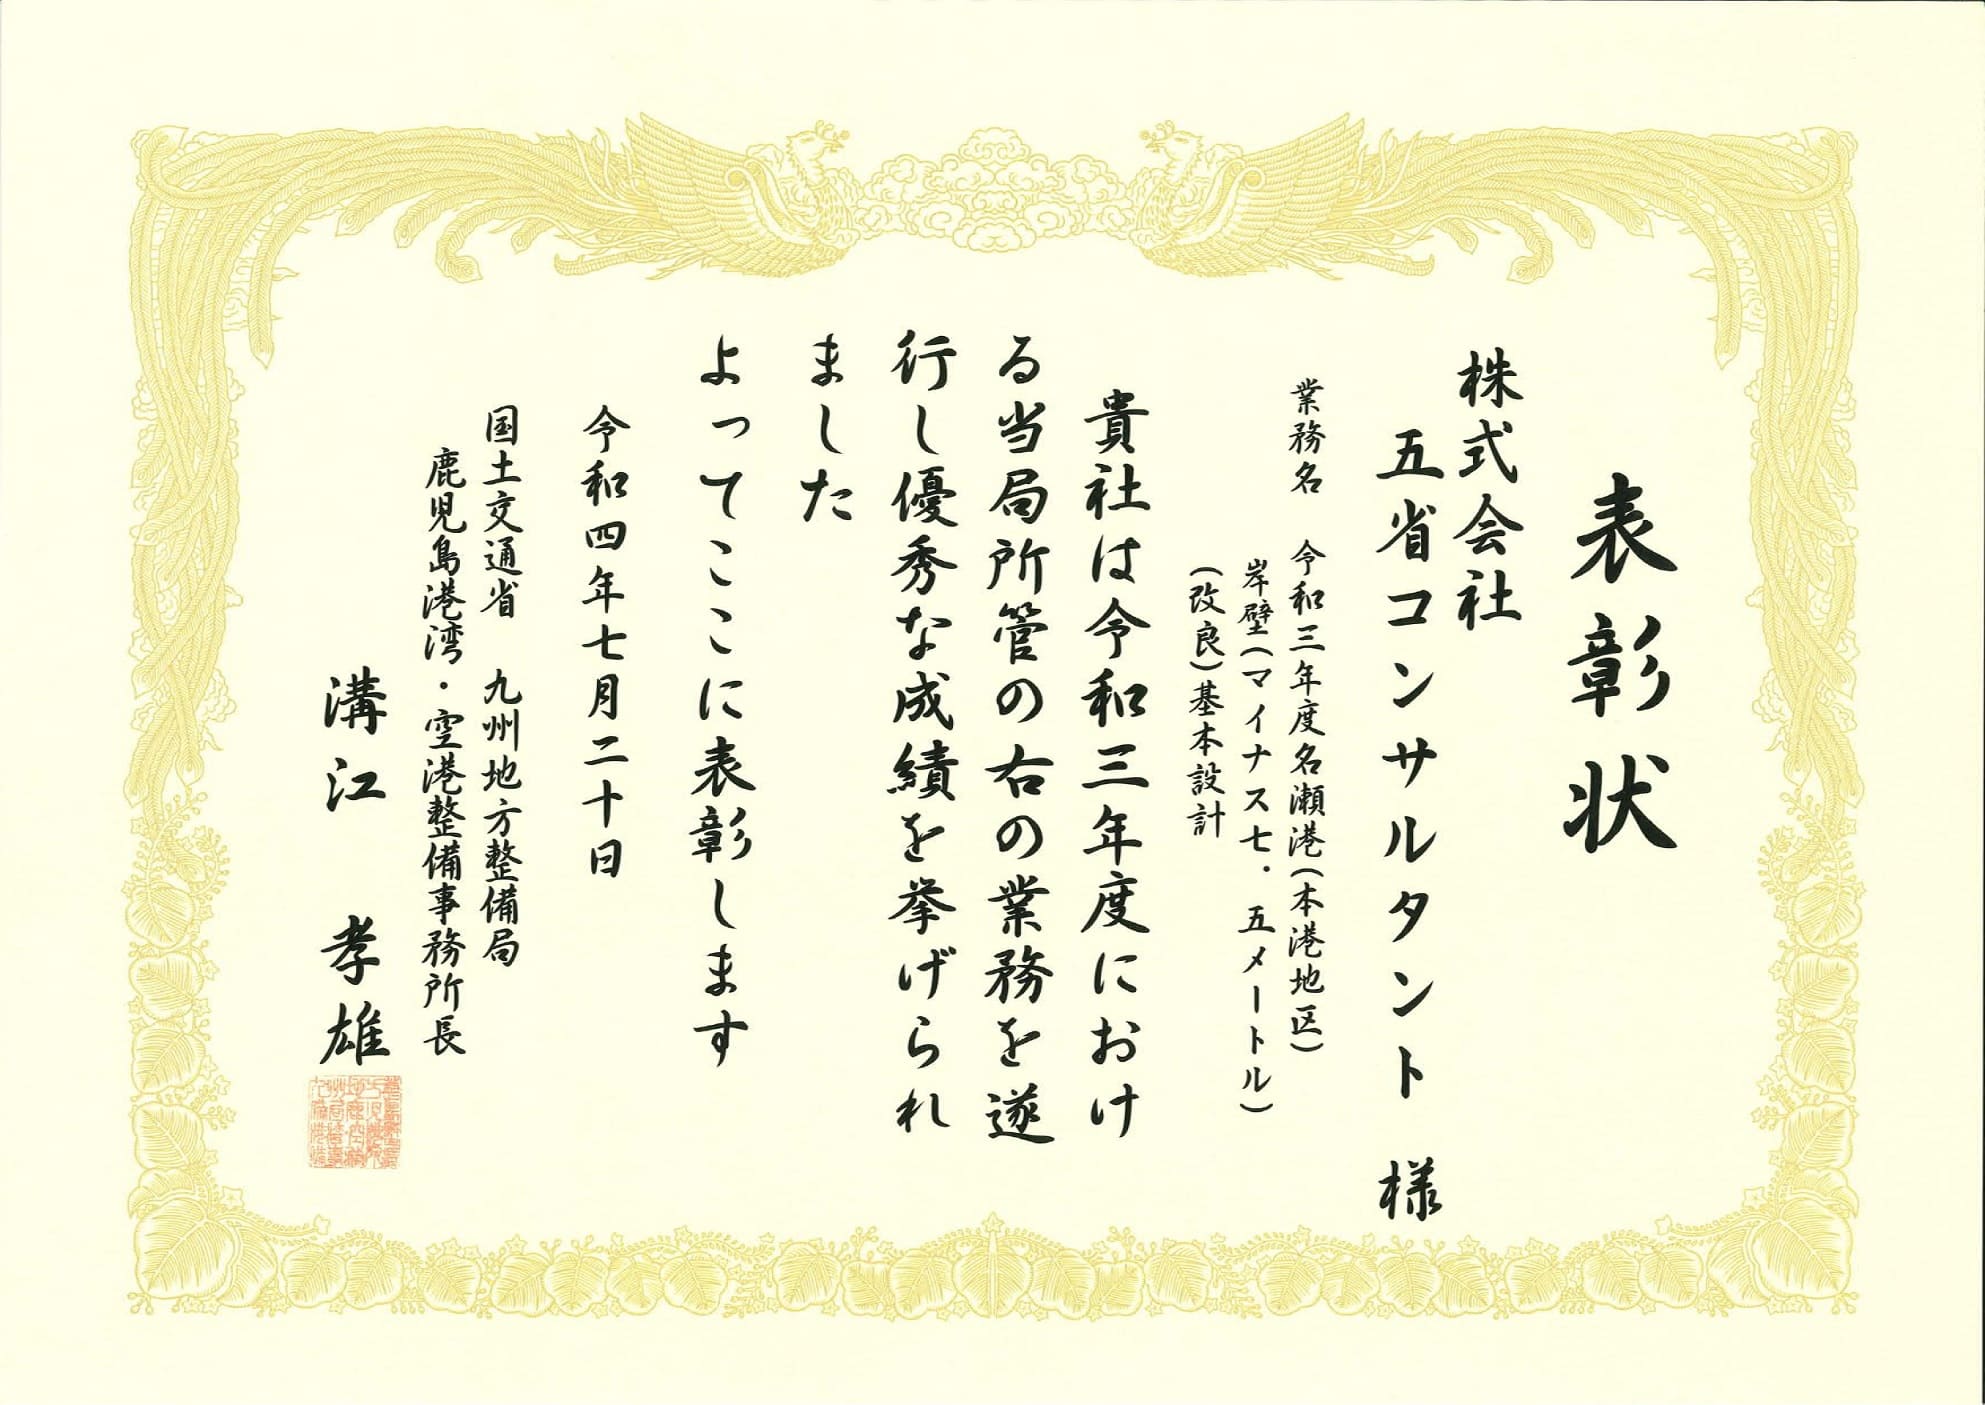 表彰状
株式会社
五省コンサルタント 様
業務名 令和三年度名瀬港(本港地区)
岸壁(マイナス七．五メートル)
(改良)基本設計
貴社は令和三年度におけ
る当局所管の右の業務を遂
行し優秀な成績を挙げられ
ました
よってここに表彰します
令和四年七月二十日
国土交通省 九州地方整備局
鹿児島港湾・空港整備事務所長
溝江 孝雄